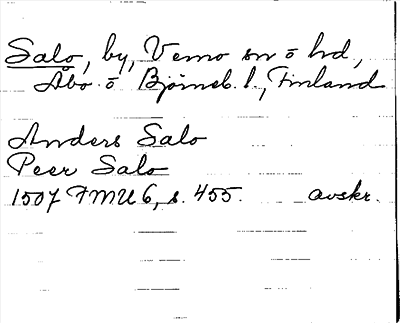 Salo, by, Vemo sn o hd,
Åbo o Björneb. l., Finland
Anders Salo
Peer Salo
1507 FMU 6, s. 455. avskr.